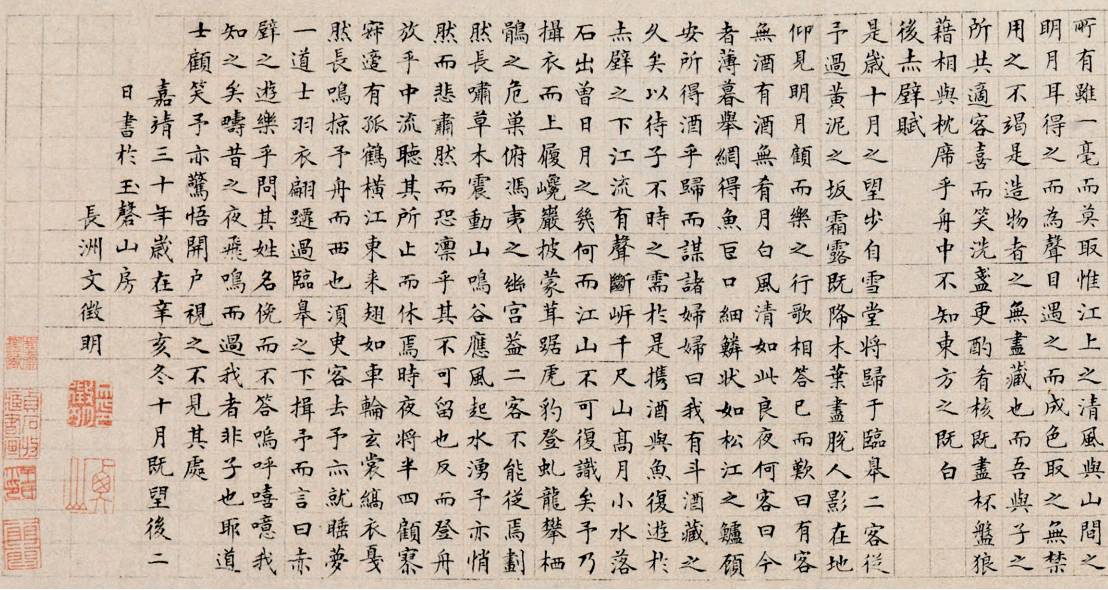 所有雖一毫而莫取惟江上之清風與山間之
明月耳得之而為聲目遇之而成色取之無禁
用之不竭是造物者之無盡藏也而吾與子之
所共適客喜而笑洗盞更酌肴核既盡杯盤狼
藉相與枕席乎舟中不知東方之既白
後赤壁賦
是歲十月之望步自雪堂將歸于臨皋二客從
予過黃泥之坂霜露既降木葉盡脫人影在地
仰見明月顧而樂之行歌相答已而歎曰有客
無酒有酒無肴月白風清如此良夜何客曰今
者薄暮舉網得魚巨口細鱗狀如松江之鱸顧
安所得酒乎歸而謀諸婦婦曰我有斗酒藏之
久矣以待子不時之需於是携酒與魚復遊於
赤壁之下江流有聲斷岸千尺山高月小水落
石出曾日月之幾何而江山不可復識矣予乃
攝衣而上履巉巖披蒙茸踞虎豹登虬龍攀栖
鶻之危巢俯馮夷之幽宮蓋二客不能從焉劃
然長嘯草木震動山鳴谷應風起水湧予亦悄
然而悲肅然而恐凛乎其不可留也反而登舟
放乎中流聽其所止而休焉時夜將半四顧寂
寥適有孤鶴橫江東来翅如車輪玄裳縞衣戛
然長鳴掠予舟而西也須臾客去予亦就睡夢
一道士羽衣翩躚過臨皋之下揖予而言曰赤
壁之遊樂乎問其姓名俛而不答嗚呼噫嘻我
知之矣疇昔之夜飛鳴而過我者非子也耶道
士顧笑予亦驚悟開户視之不見其處
嘉靖三十年歲在辛亥冬十月既望後二
日書於玉磬山房
長洲文徵明